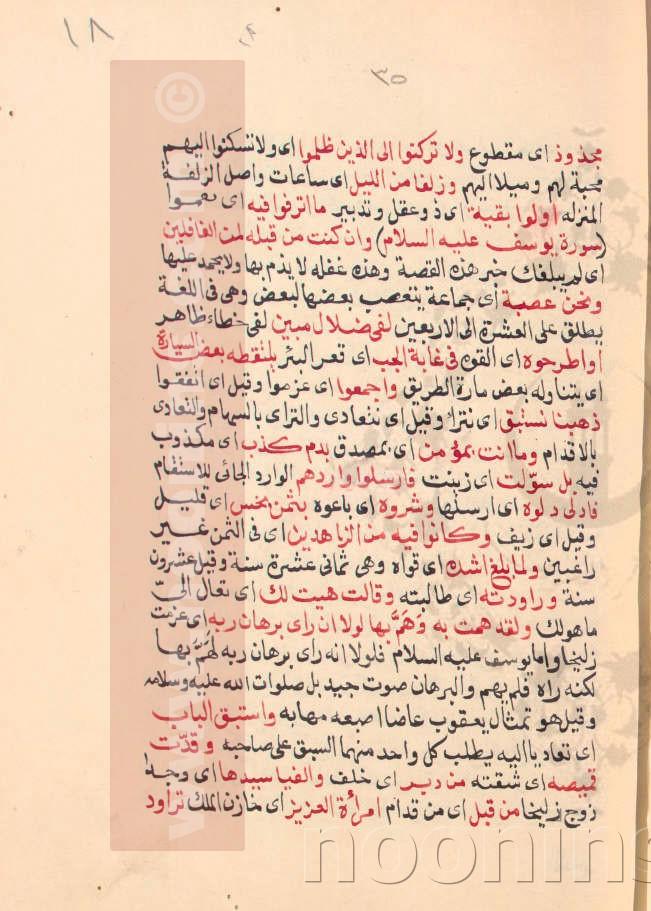 ١٨
٢٤
٣٥
مجذوذ اى مقطوع ولا تركنوا الى الذين ظلموا اى ولا تسكنوا اليهم
محبة لهم وميلا اليهم وزلفا من الليل اى ساعات واصل الزلفة
المنزله اولوا بقية اى ذو عقل وتدبير ما اترفوا فيه اى نعموا
(سورة يوسف عليه السلام) وان كنت من قبله لمن الغافلين
اى لم يبلغك خبر هذه القصة وهذه غفله لا يذم بها ولا يحمد عليها
ونحن عصبة اى جماعة يتعصب بعضها لبعض وهى فى اللغة
يطلق على العشرة الى الاربعين لفى ضلال مبين لفى خطاء ظاهر
او اطرحوه اى القوه فى غيابة الجب اى قعر البئر يلتقطه بعض السيارة
اى يتناوله بعض مارة الطريق واجمعوا اى عزموا وقيل اى اتفقوا
ذهبنا نستبق اى نتراٰ وقيل اى نتعادى والتراى بالسهام والتعادى
بالاقدام وما انت بمؤمن اى بمصدق بدم كذب اى مكذوب
فيه بل سوّلت اى زينت فارسلوا واردهم الوارد الجائى للاستقام
فادلى دلوه اى ارسلها وشروه اى باعوه بثمن بخس اى قليل
وقيل اى زيف وكانوا فيه من الزاهدين اى فى الثمن غير
راغبين ولما بلغ اشده اى قواه وهى ثمانى عشرة سنة وقيل عشرون
سنة وراودته اى طالبته وقالت هيت لك اى تعال الىّ
ما هو لك ولقد همت به وَهَمَّ بها لولا ان راى برهان ربه اى عزمت
زليخا واما يوسف عليه السلام فلولا انه راى برهان ربه لَهَمَّ بها
لكنه راه فلم يهم والبرهان صوت جبيد بل صلوات الله عليه وسلامه
وقيل هو تمثال يعقوب عاضا اصبعه مهابه واستبق الباب
اى تعادبا اليه يطلب كل واحد منهما السبق على صاحبه وقدّت
قميصه اى شقته من دبر اى خلف والفيا سيدها اى وجدا
زوج زليخا من قبل اى من قدام امرأة العزيز اى خازن الملك تراود
noorins